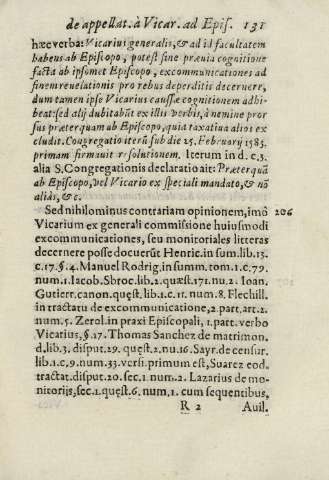 de appellat. à Vicar. ad Epis. 131
hæc verba: Vicarius generalis, & ad id facultatem
habens ab Episcopo, potest sine prævia cognitione
facta ab ipsomet Episcopo, excommunicationes ad
finem reuelationis pro rebus deperditis decernere,
dum tamen ipse Vicarius causæ cognitionem adhi-
beat: sed alij dubitabũt ex illis verbis, à nemine pror
sus præterquam ab Episcopo, quia taxatiua alios ex
cludit. Congregatio iterũ sub die 25. February 1585.
primam firmauit resolutionem. Iterum in d. c. 3.
alia S. Congregationis declaratio ait: Præterquã
ab Episcopo, vel Vicario ex speciali mandato, & nõ
aliàs, &c.
Sed nihilominus contrariam opinionem, imò 206
Vicarium ex generali commissione huiusmodi
excommunicationes, seu monitoriales litteras
decernere posse docuerũt Henric. in sum. lib. 13.
c. 17. §. 4. Manuel Rodrig. in summ. tom. 1. c. 79.
num. 1. Iacob. Sbroc. lib. 2. quæst. 171. nu. 2. Ioan.
Gutierr. canon. quæst. lib. 1. c. 11. num. 8. Flechill.
in tractatu de excommunicatione, 2. part. art. 2.
num. 5. Zerol. in praxi Episcopali, 1. part. verbo
Vicarius, §. 17. Thomas Sanchez de matrimon.
d. lib. 3. disput. 29. quæst. 2. nu. 16. Sayr. de censur.
lib. 1. c. 9. num. 33. versi. primum est, Suarez eod.
tractat. disput. 20. sec. 1 num. 2. Lazarius de mo-
nitorijs, sec. 1. quæst. 6. num. 1. cum sequentibus,
R 2 Auil.